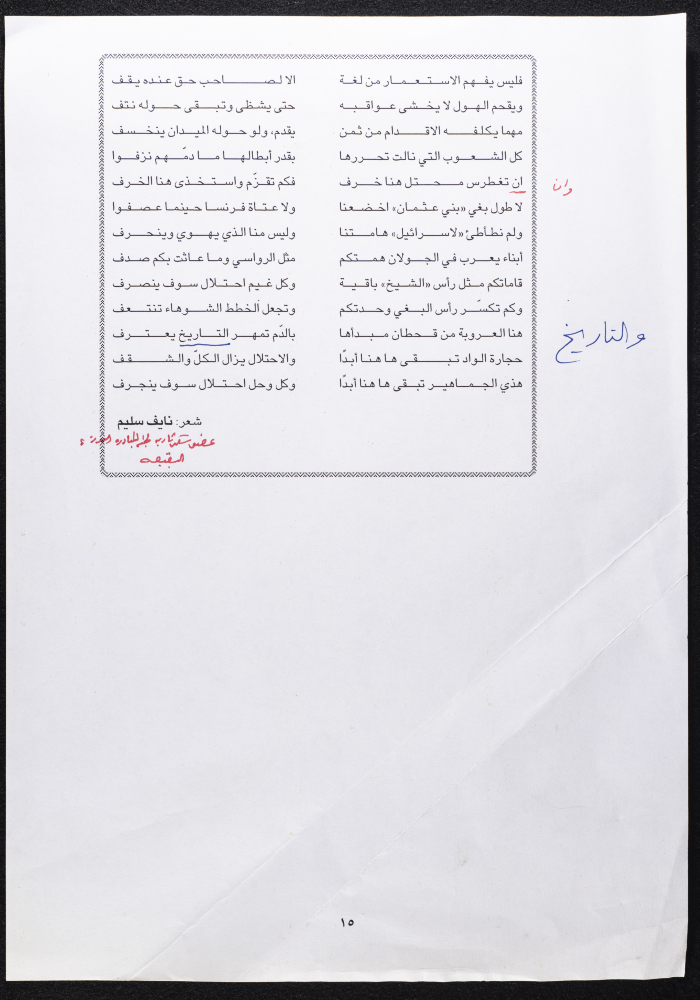 فليس يفهم الاستعمار من لغة الا لصاحب حق عنده يقف
ويقحم الهول لا يخشى عواقبه حتى يشظى وتبقى حوله نتف
مهما يكلفه الاقدام من ثمن يقدم، ولو حوله الميدان ينخسف
كل الشعوب التي نالت تحررها بقدر أبطالها ما دمّهم نزفوا
ان تغطرس محتل هنا خرف فكم تقزّم واستخذى هنا الخرف
وان
لا طول بغي «بني عثمان» اخضعنا ولا عتاة فرنسا حينما عصفوا
ولم نطأطئ «لاسرائيل» هامتنا وليس منا الذي يهوي وينحرف
أبناء يعرب في الجولان همتكم مثل الرواسي وما عاثت بكم صدف
قاماتكم مثل رأس «الشيخ» باقية وكل غيم احتلال سوف ينصرف
وكم تكسّر رأس البغي وحدتكم وتجعل الخطط الشوهاء تنتعف
هنا العروبة من قحطان مبدأها بالدّم تمهر التاريخ يعترف
والتاريخ
حجارة الواد تبقى ها هنا أبدًا والاحتلال يزال الكلّ والشقف
هذي الجماهير تبقى ها هنا أبدًا وكل وحل احتلال سوف ينجرف
شعر: نايف سليم
١٥